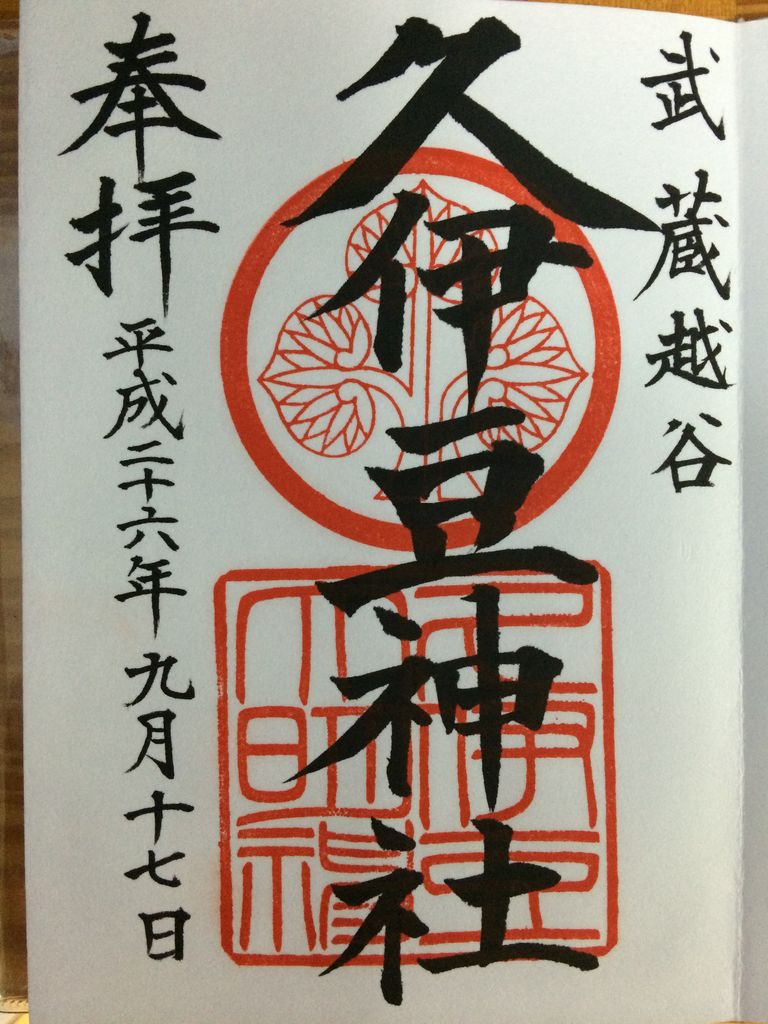 武蔵越谷
久伊豆神社
奉拝
平成二十六年九月十七日